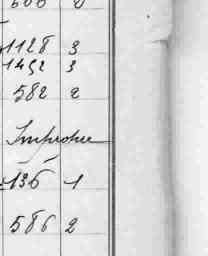 1128 3
1492 3
582 2
Improprie
136 1
586 2